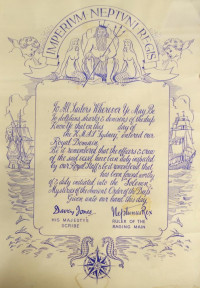 IMPERIUM NEPTUNI REGIS
To All Sailors Wherever Ye May Be
To dolphins, sharks & denizens of the deep
Know Ye that on this day of
the H.M.A.S Sydney entered our
Royal Domain.
Be it remembered that the officers & crew
of the said vessel have been duly inspected
by our Royal Staff & be it remembered that
has been found worthy
& duly initiated into the "Solemn
Mysteries of the Ancient Order of the Deep"
Given unto our hand this day
Davey Jones
Neptunus Rex
HIS MAJESTY'S
SCRIBE
RULER OF THE
RAGING MAIN